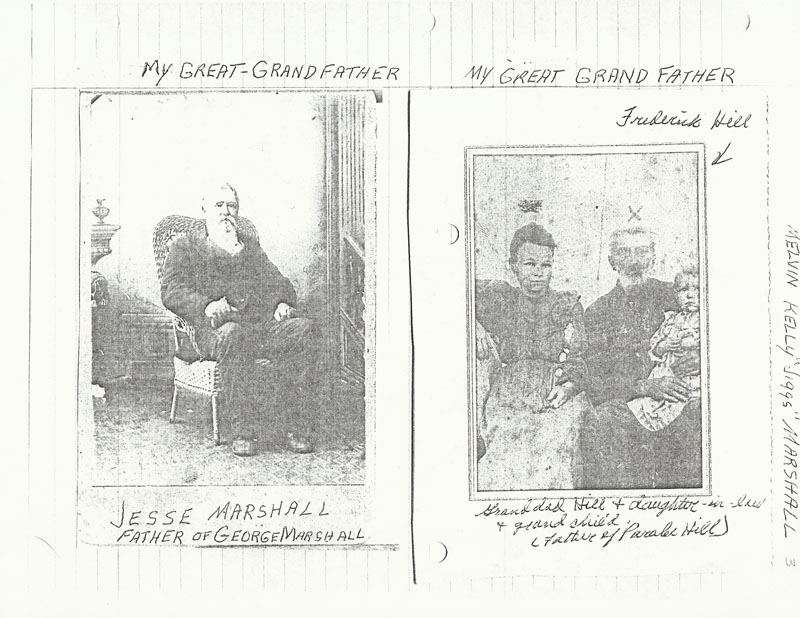 MY GREAT-GRANDFATHER
JESSE MARSHALL
FATHER OF GEORGE MARSHALL
MY GREAT GRAND FATHER
Frederick Hill
X
Granddad Hill + daughter-in-law
+ grand child.
(Father of Hill)
MELVIN KELLY "Jiggs" MARSHALL 3